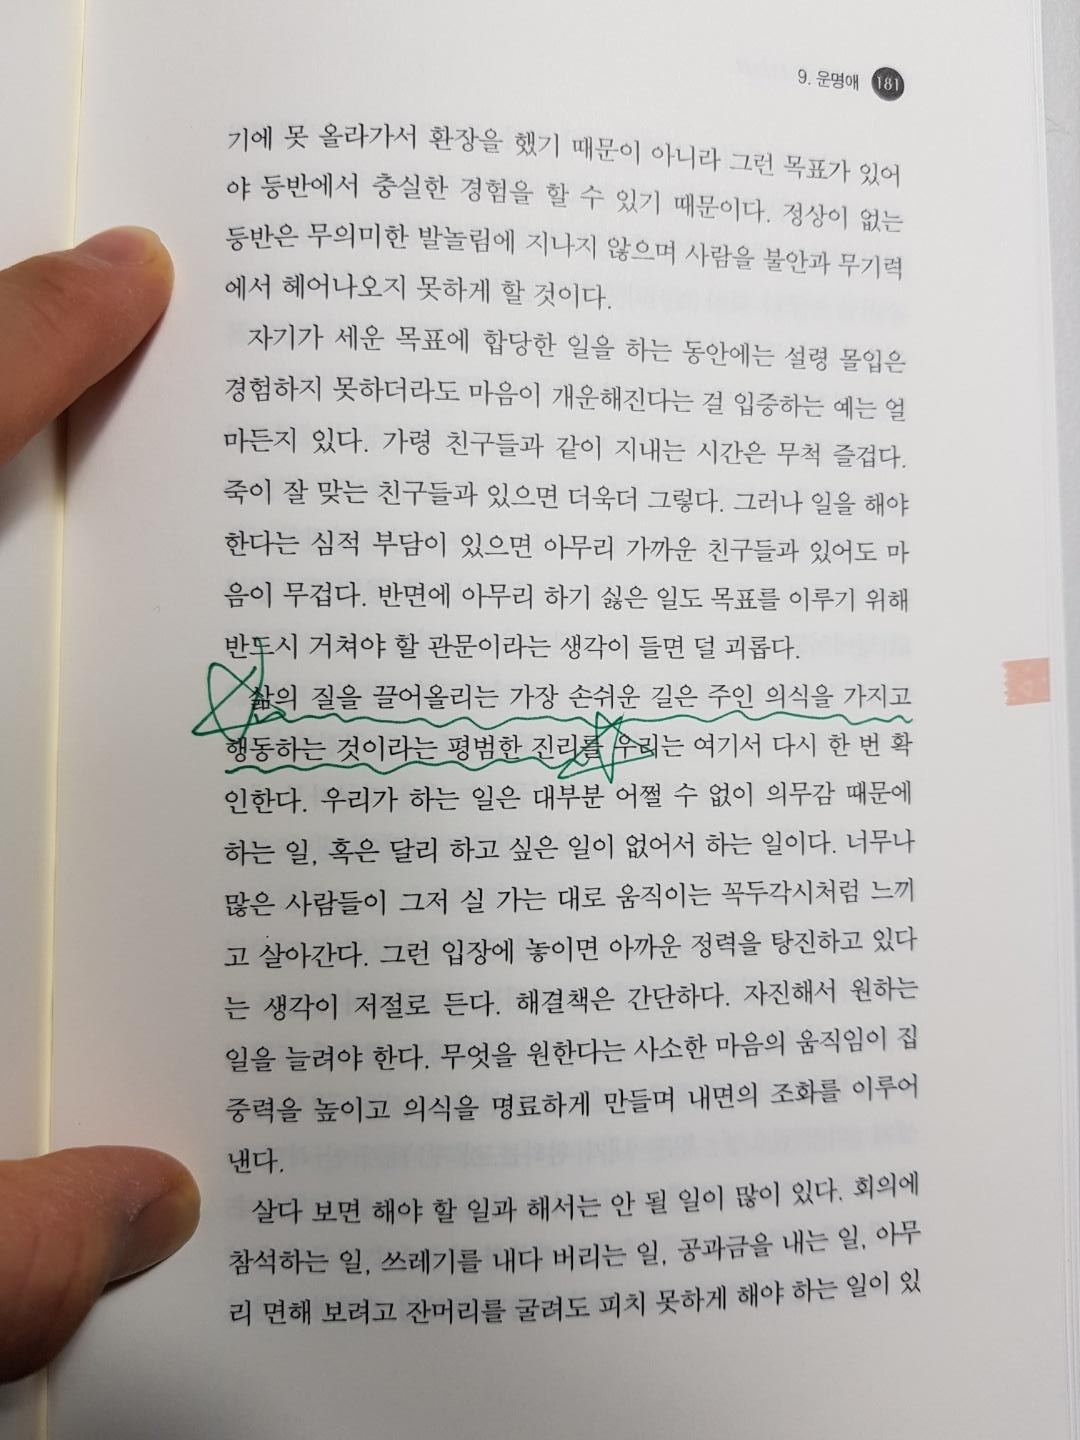 9. 운명애 181
기에 못 올라가서 환장을 했기 때문이 아니라 그런 목표가 있어
야 등반에서 충실한 경험을 할 수 있기 때문이다. 정상이 없는
등반은 무의미한 발놀림에 지나지 않으며 사람을 불안과 무기력
에서 헤어나오지 못하게 할 것이다.
자기가 세운 목표에 합당한 일을 하는 동안에는 설령 몰입은
경험하지 못하더라도 마음이 개운해진다는 걸 입증하는 예는 얼
마든지 있다. 가령 친구들과 같이 지내는 시간은 무척 즐겁다.
죽이 잘 맞는 친구들과 있으면 더욱더 그렇다. 그러나 일을 해야
한다는 심적 부담이 있으면 아무리 가까운 친구들과 있어도 마
음이 무겁다. 반면에 아무리 하기 싫은 일도 목표를 이루기 위해
반드시 거쳐야 할 관문이라는 생각이 들면 덜 괴롭다.
삶의 질을 끌어올리는 가장 손쉬운 길은 주인 의식을 가지고
행동하는 것이라는 평범한 진리를 우리는 여기서 다시 한 번 확
인한다. 우리가 하는 일은 대부분 어쩔 수 없이 의무감 때문에
하는 일, 혹은 달리 하고 싶은 일이 없어서 하는 일이다. 너무나
많은 사람들이 그저 실 가는 대로 움직이는 꼭두각시처럼 느끼
고 살아간다. 그런 입장에 놓이면 아까운 정력을 탕진하고 있다
는 생각이 저절로 든다. 해결책은 간단하다. 자진해서 원하는
일을 늘려야 한다. 무엇을 원한다는 사소한 마음의 움직임이 집
중력을 높이고 의식을 명료하게 만들며 내면의 조화를 이루어
낸다.
살다 보면 해야 할 일과 해서는 안 될 일이 많이 있다. 회의에
참석하는 일, 쓰레기를 내다 버리는 일, 공과금을 내는 일, 아무
리 면해 보려고 잔머리를 굴려도 피치 못하게 해야 하는 일이 있